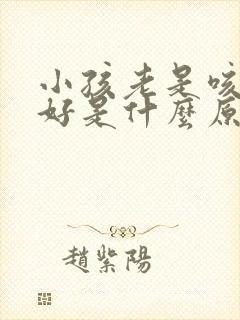 小孩老是咳
好是什麼原
趙紫陽